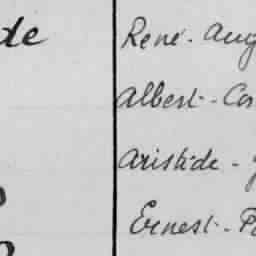 de
René - Aug
Albert - Cos
Aristide -
Ernest - Pa